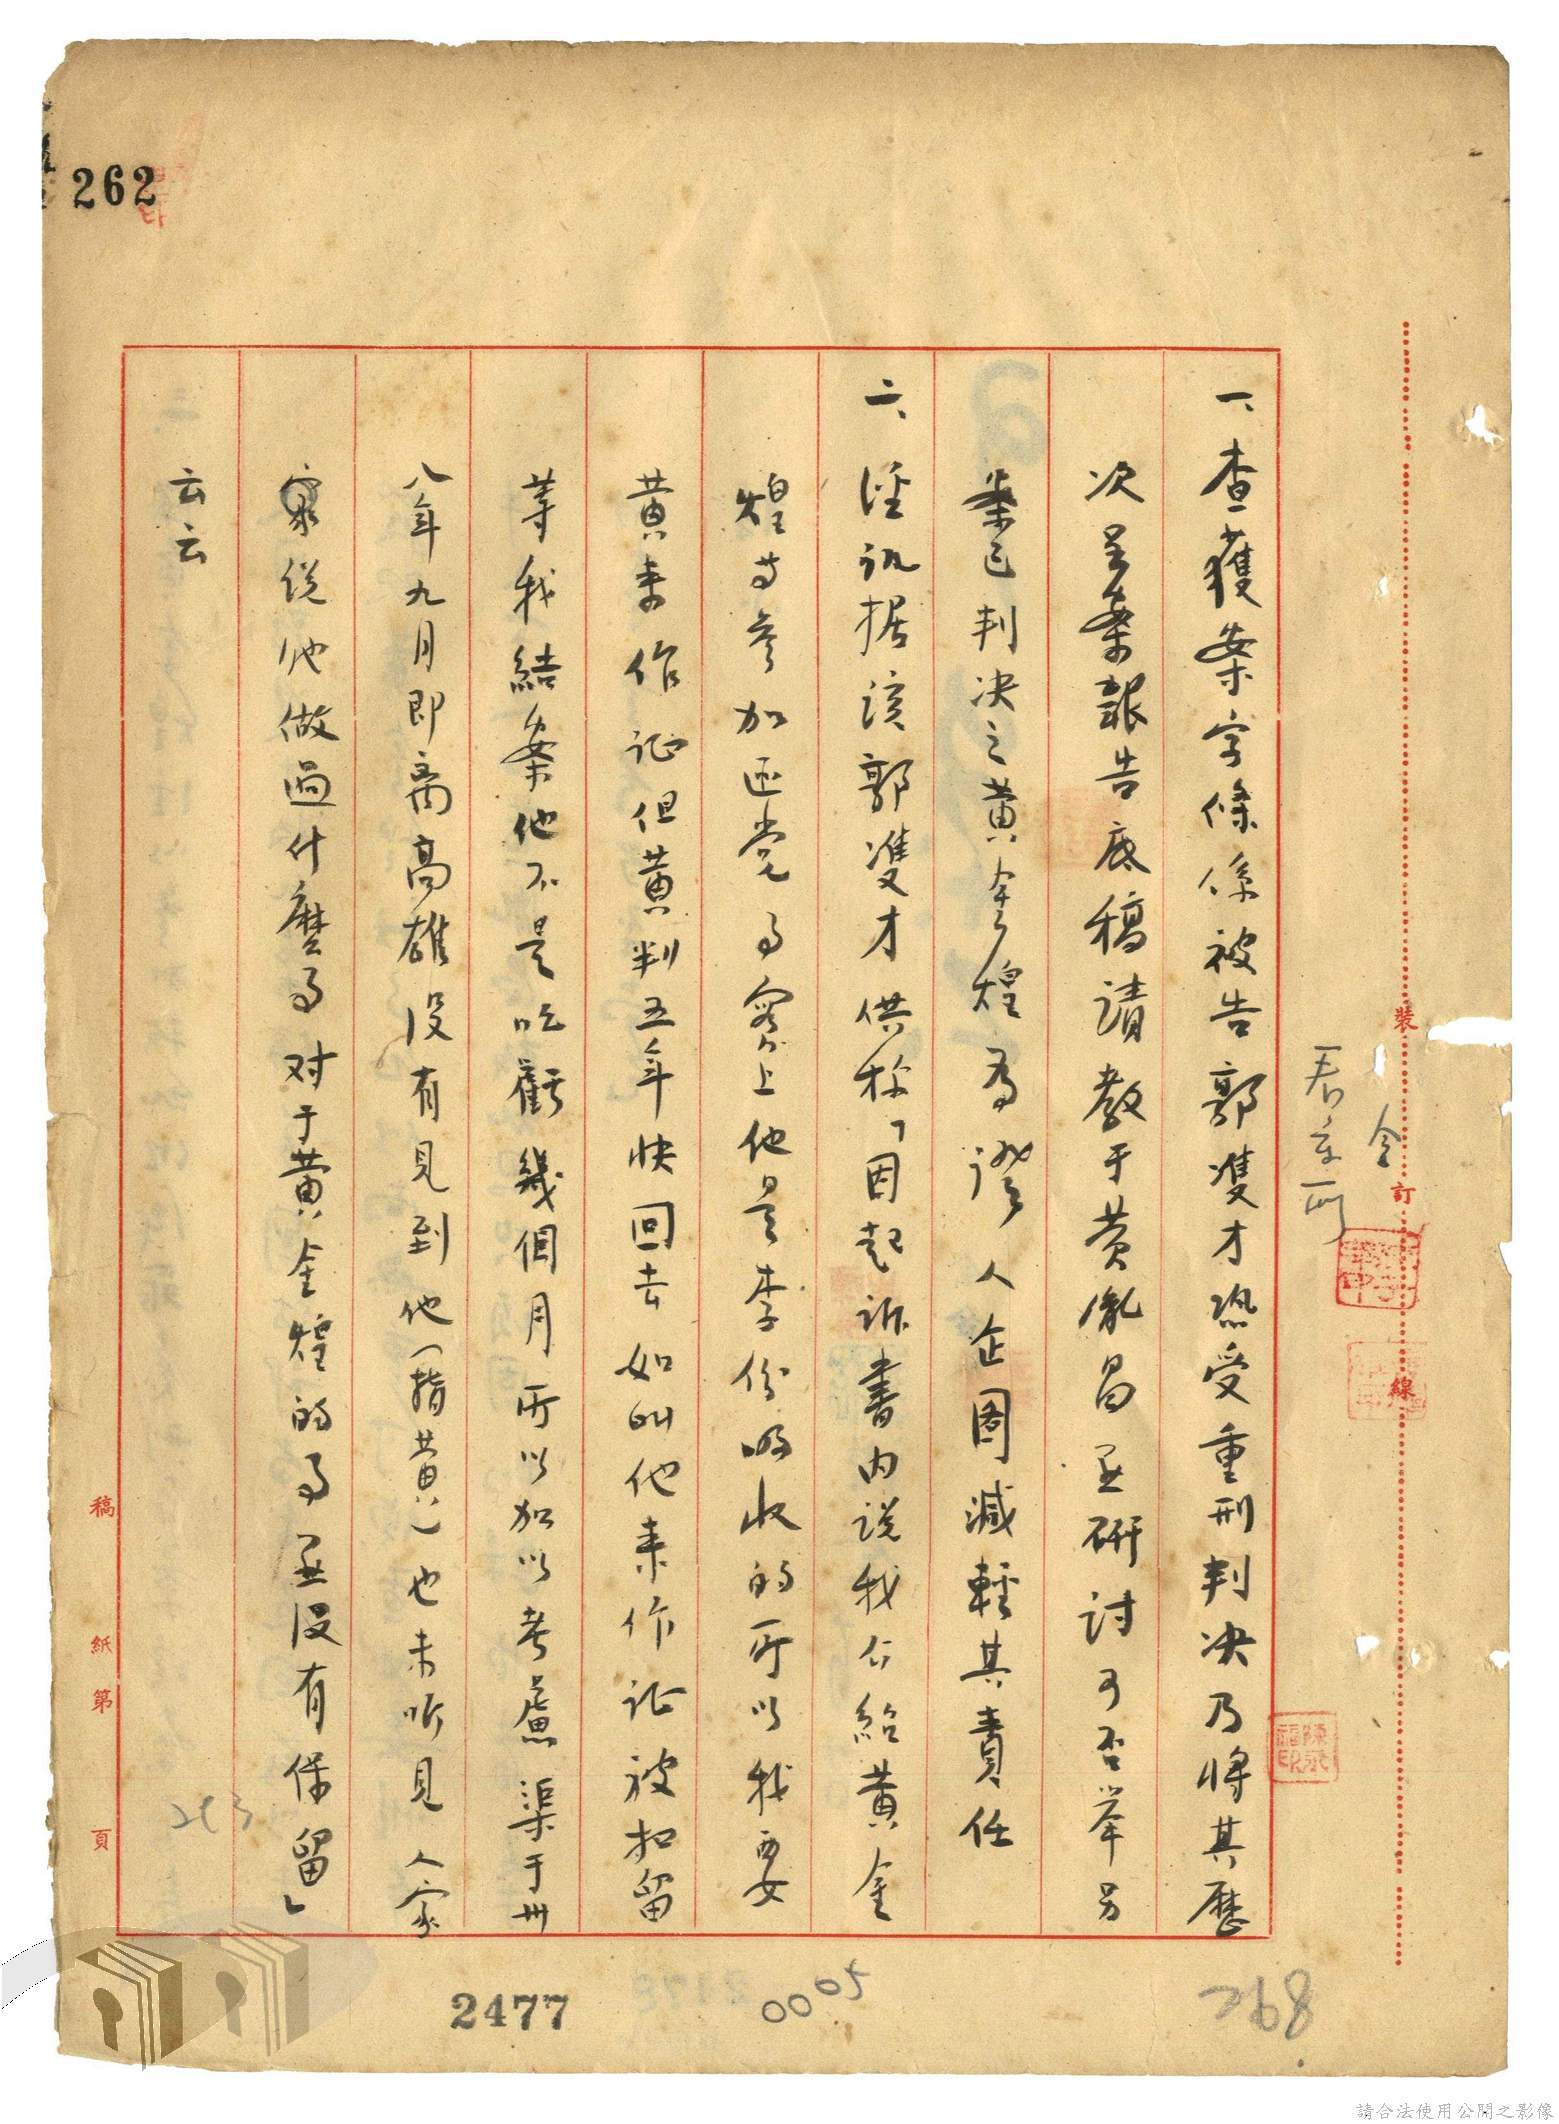 一、查獲案字條係被告郭雙才恐受重刑判决乃將其歷
次呈案報告底稿請教于黃胤昌並研討可否举另
案已判决之黃金煌為證人企图減輕其責任
二、經訊据該郭雙才供称「因起訴書内說我介紹黃金
煌等参加匪党事實上他是李份吸收的所以我要
黃来作证但黃判五年快回去如叫他来作证被扣留
等我結案他不是吃虧幾個月所以加以考慮渠于卅
八年九月即离高雄没有見到他(指黃)也未听見人家
家說他做過什麼事对于黃金煌的事並没有保留」
云云
裝
訂
線
稿
紙
第
頁
262
2477
0005
268
263
請合法使用公開之影像